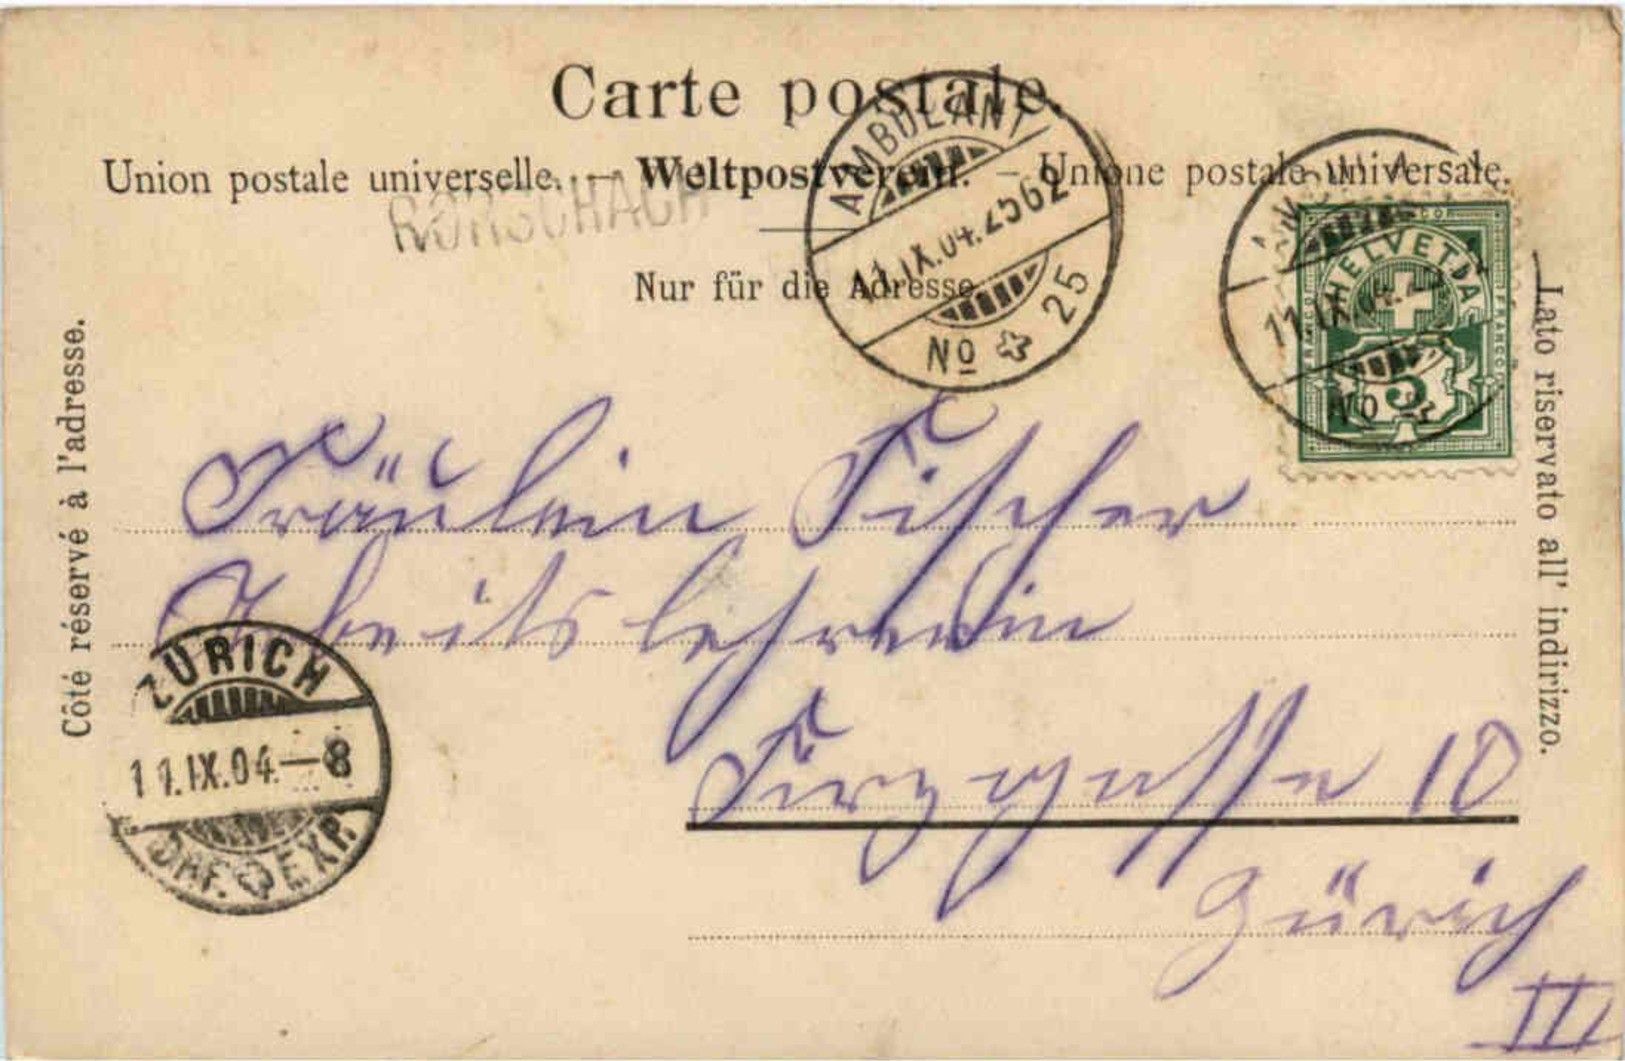 Carte postale.
Union postale universelle. — Weltpostverein. — Unione postale universale.
RORSCHACH
Nur für die Adresse.
AMBULANT
11.IX.04. 2562
No 25
AMBULANT
11.IX.04.
No
HELVETIA
FRANCO
FRANCO
FRANCO
5
Côté réservé à l'adresse.
Lato riservato all' indirizzo.
Fräulein Fischer
Arbeitslehrerin
10
Zürich
II
ZÜRICH
11.IX.04.—8
BRF. EXP.